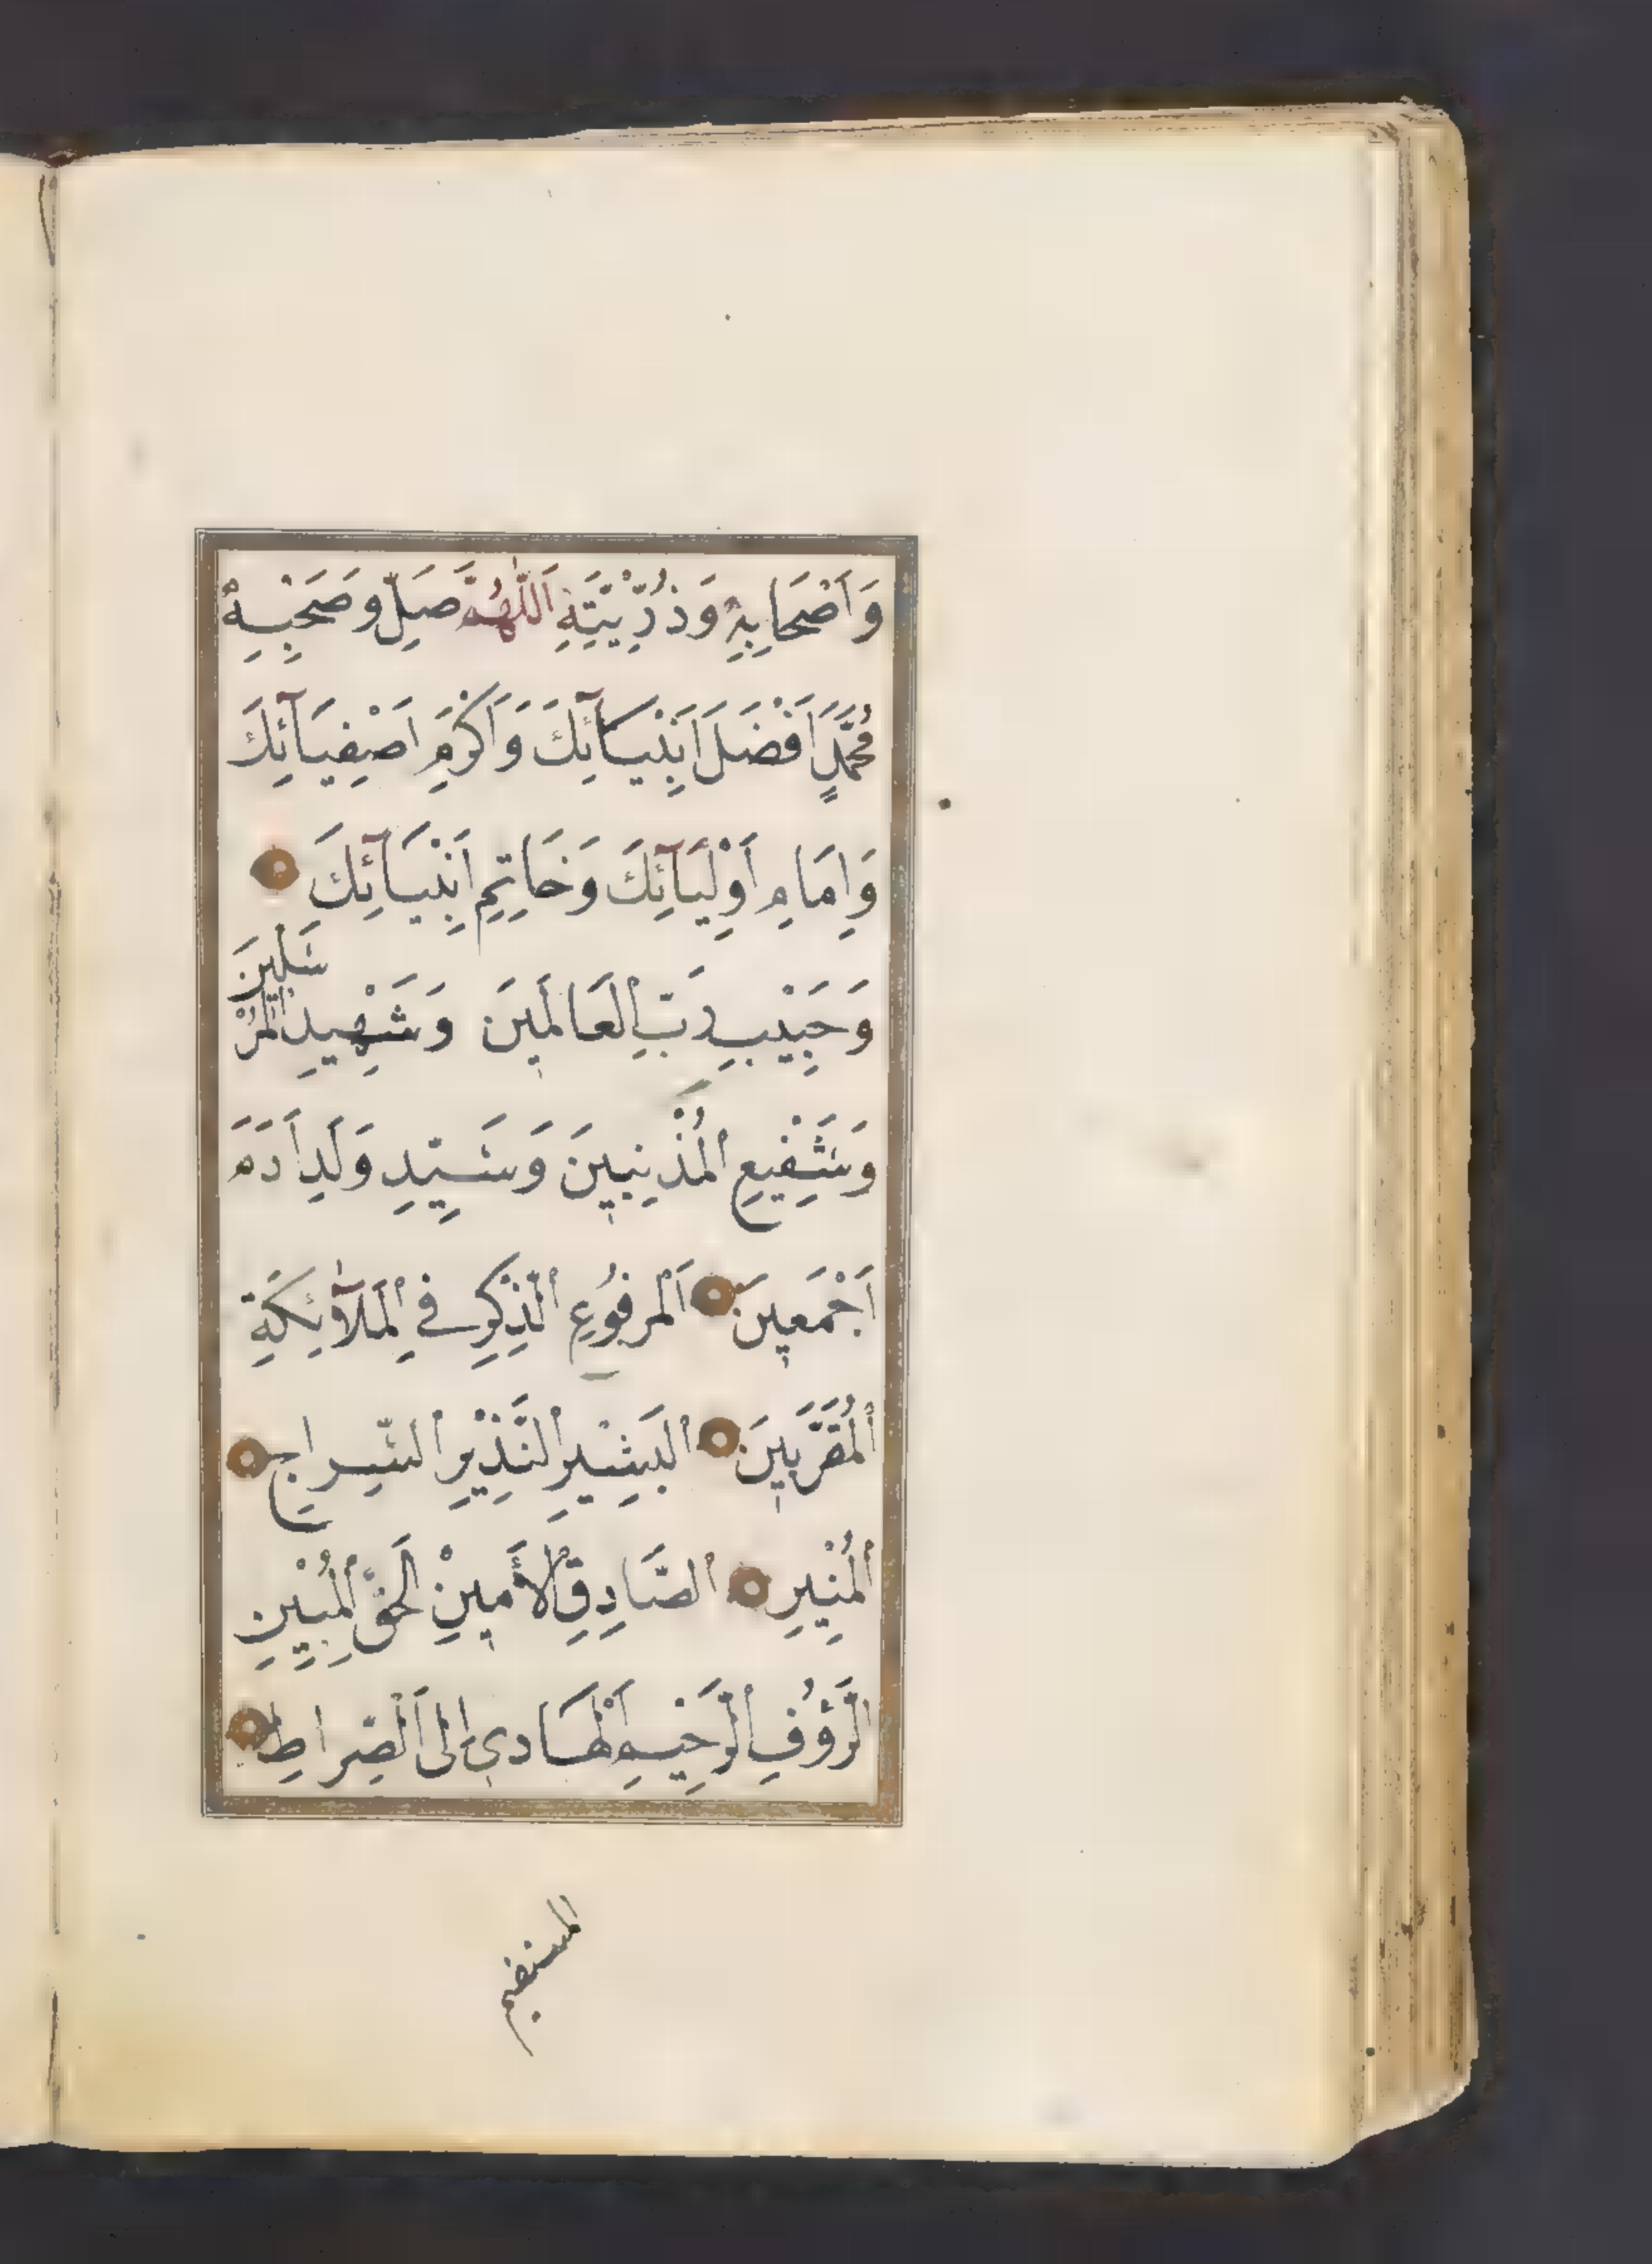 وَاَصْحَابِهِ وَذُرِّيَّتِهِ اَللّٰهُمَّ صَلِّ وَصَحْبِهِ
مُحَمَّدٍ اَفْضَلَ اَنْبِيَآئِكَ وَاَكْرَمِ اَصْفِيَآئِكَ
وَاِمَامِ اَوْلِيَآئِكَ وَخَاتِمِ اَنْبِيَآئِكَ
وَحَبِيْبِ رَبِّ الْعَالَمِينَ وَشَهِيدِ الْمُرْسَلِينَ
وَشَفِيعِ الْمُذْنِبِينَ وَسَيِّدِ وَلَدِ اَدَمَ
اَجْمَعِينَ اَلْمَرفُوعِ الذِّكْرِ فِي الْمَلَآئِكَةِ
الْمُقَرَّبِينَ الْبَشِيْرِ النَّذِيْرِ السِّراجِ
الْمُنِيْرِ الصَّادِقِ الْأَمِينِ الْحَقِّ الْمُبِيْنِ
الرَّؤُفِ الرَّحِيْمِ اَلْهَادِي اِلَى الصِّراطِ
المستقيم